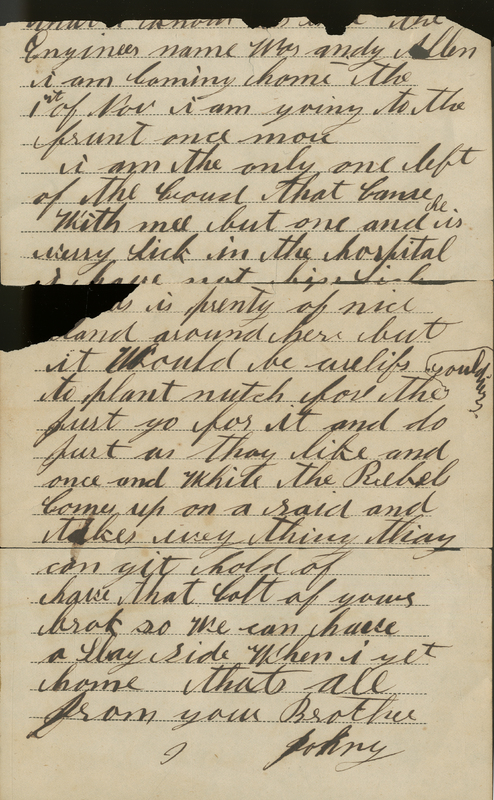 the
Engineer name Was andy Allen
i am Coming home the
1st of Nov i am going to the
frunt once more
i am the only one left
of the Croud that Came
With mee but one and he is
verry Sick in the hospital
i have not
is plenty of nice
land around here but
it Would be uselifs
to plant nutch fore the
just go for it and do
just as thay like and
once and While the Rebel
Comes up on a raid and
takes every thing thay
can git hold of
have that Colt of yours
brok so We can have
a Slay ride When i get
home thats all
from your Brother
Johny